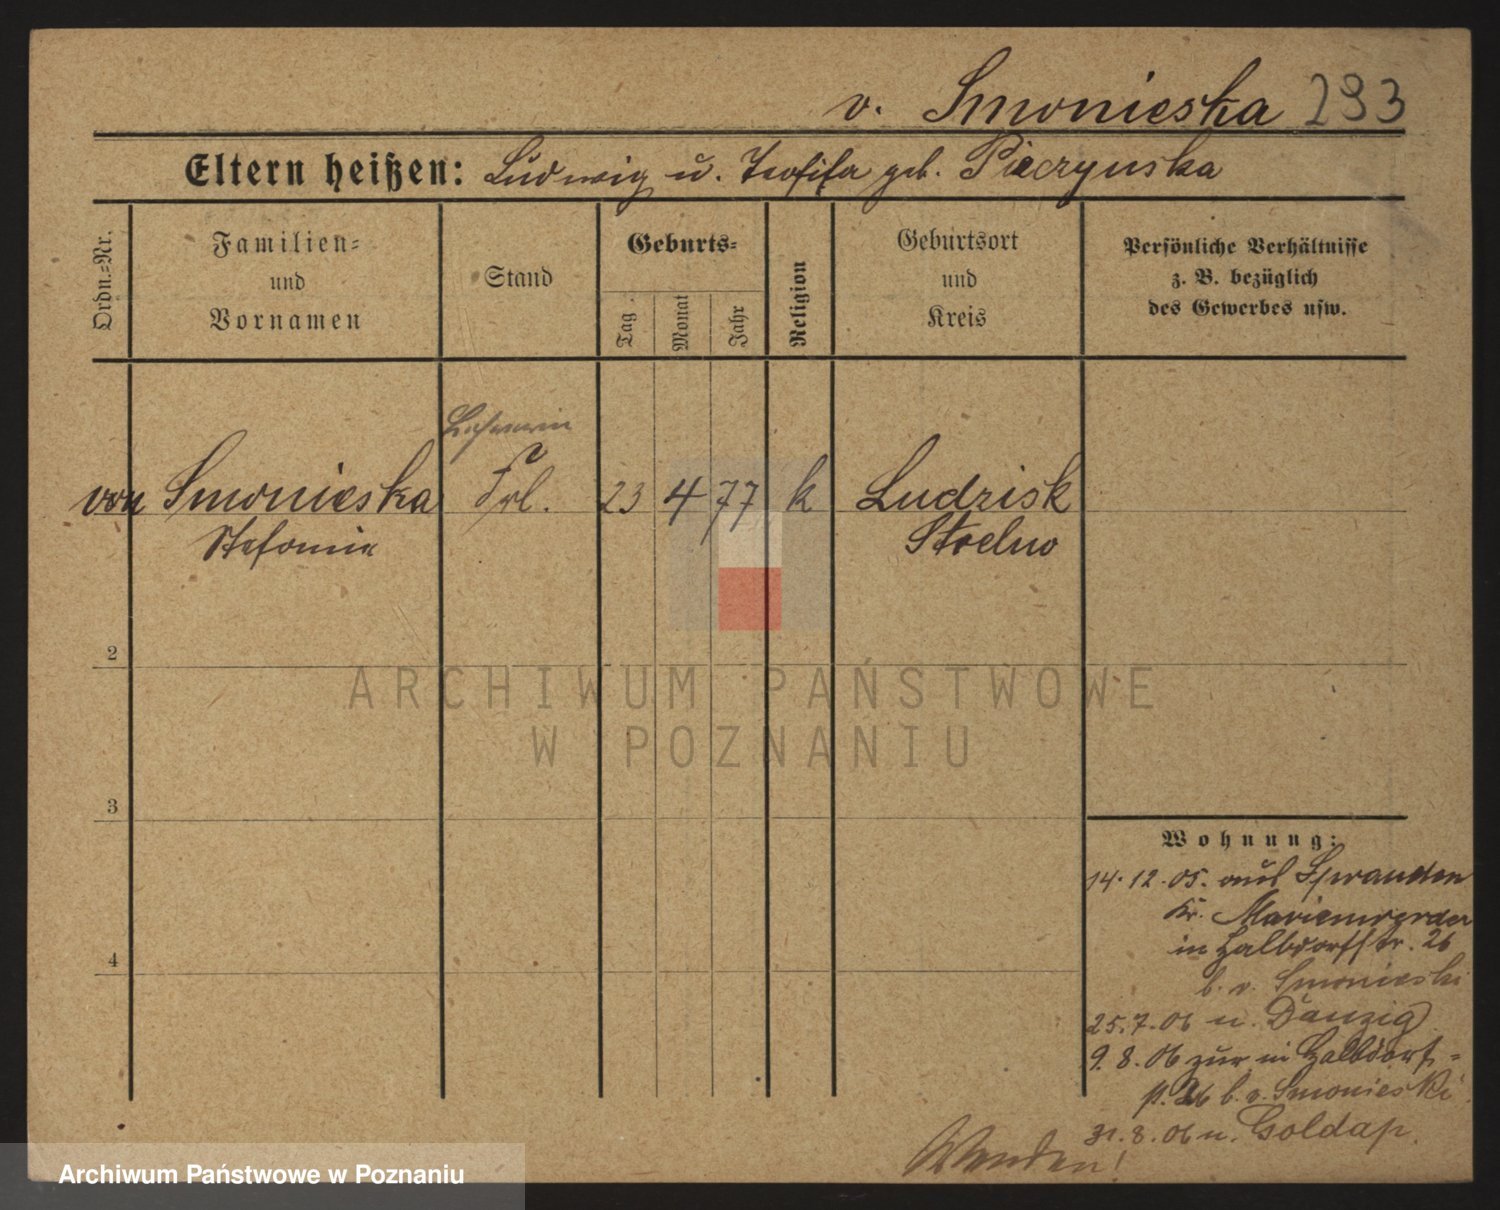 v. Smonieska 293
Eltern heißen: Ludwig u. Teofila geb. Pieczynska
Ordn.-Nr.
Familien-
und
Vornamen
Stand
Geburts-
Tag
Monat
Jahr
Religion
Geburtsort
und
Kreis
Persönliche Verhältnisse
z. B. bezüglich
des Gewerbes usw.
Lehrerin
von Smonieska Frl. 23 4 77 k Ludzisk
Stefanie Strelno
2
3
4
Wohnung:
14.12.05. aus
Kr. Marienwerder
in Halbdorfstr. 26
b. v. Smonieski
25.7.06 n. Danzig
9.8.06 zur in Halbdorf-
26 b. v. Smonieski
31.8.06 n. Goldap.
Wenden!
ARCHIWUM PAŃSTWOWE
W POZNANIU
Archiwum Państwowe w Poznaniu